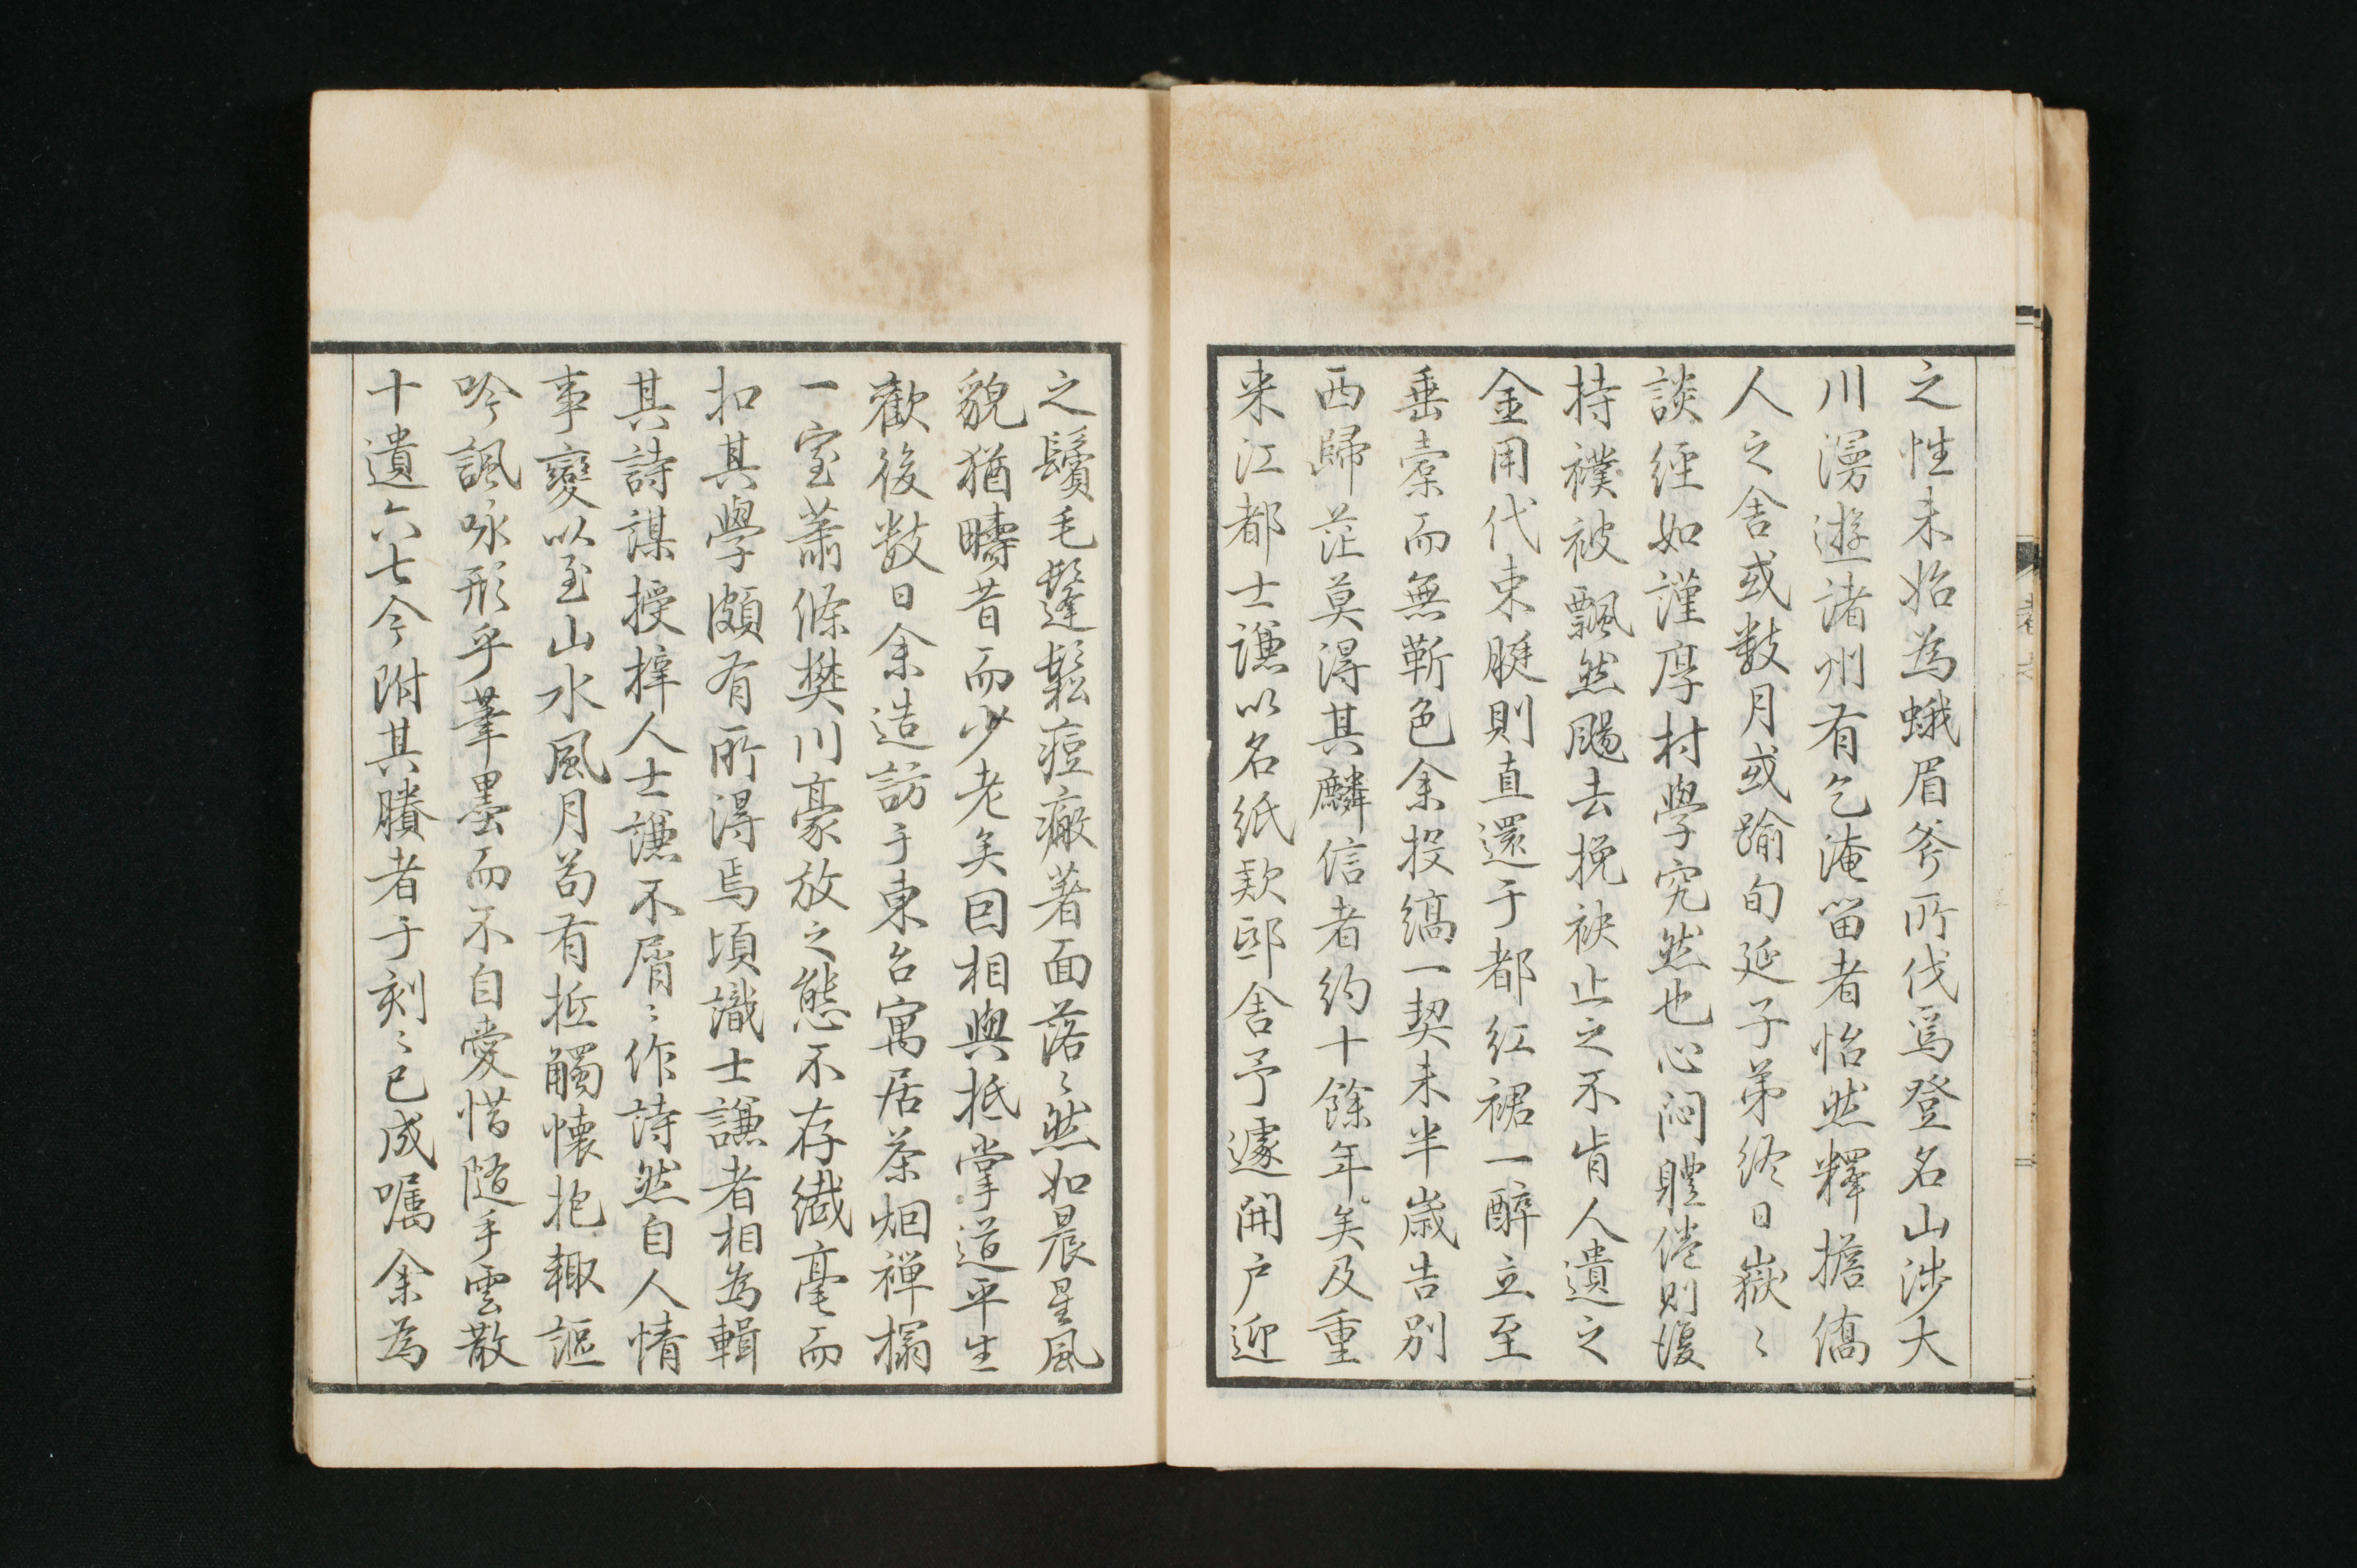 之性未始為蛾眉斧所伐焉登名山涉大
川漫遊諸州有乞淹留者怡然釋擔僑
人之舍或數月或踰旬延子弟終日嶽〻
談經如謹厚村學究然也心悶體倦則復
持襆被飄然颺去挽袂止之不肯人遺之
金用代束脡則直還于都紅裙一醉立至
垂橐而無靳色余投縞一契未半歲告別
西歸茫莫得其麟信者約十餘年矣及重
来江都士謙以名紙款邸舍予遽開户迎
之鬢毛鬔鬆痘瘢著面落〻然如晨星風
貌猶疇昔而少老矣因相與抵掌道平生
歡後数日余造訪于東台寓居茶烟禅榻
一室蕭條樊川豪放之態不存纎毫而
扣其學頗有所得焉頃識士謙者相為輯
其詩謀授梓人士謙不屑〻作詩然自人情
事變以至山水風月苟有抵觸懐抱輙謳
吟諷咏形乎筆墨而不自愛惜随手雲散
十遺六七今附其賸者于刻〻已成嘱余為